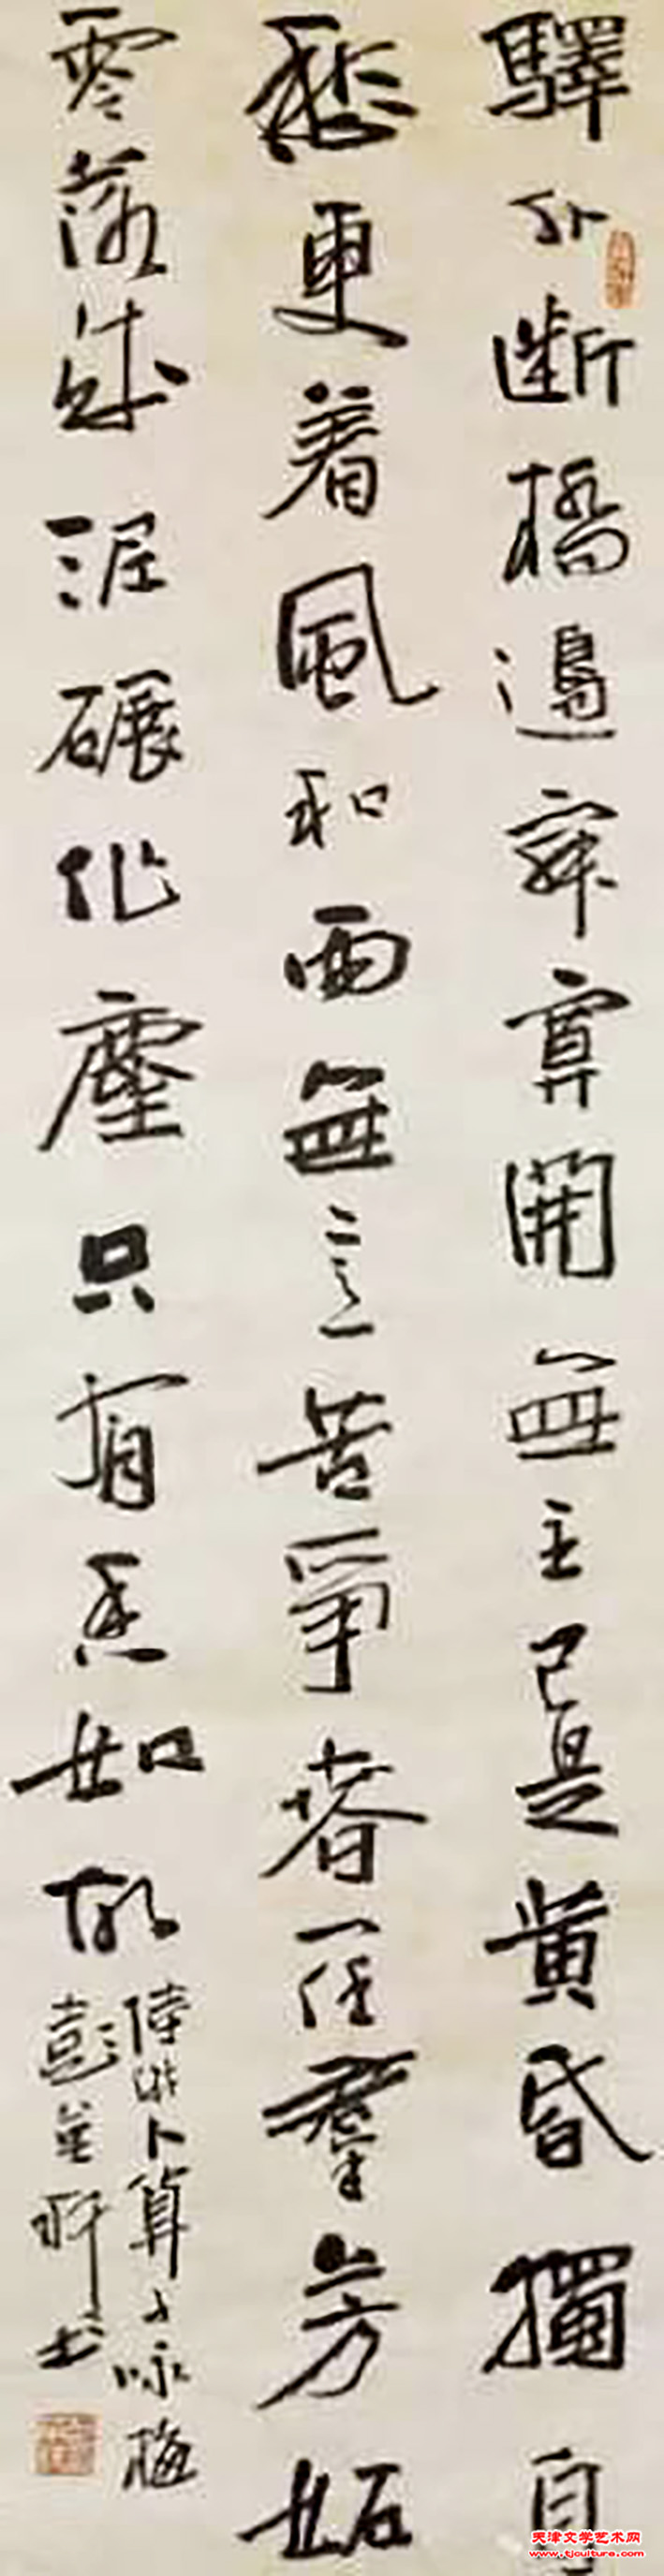 驛外斷橋邊寂寞開無主已是黃昏獨自
愁更着風和雨無意苦爭春一任羣芳妬
零落成泥碾作塵只有香如故
陸游卜算子咏梅
彭書
天津文学艺术网
www.tjculture.com